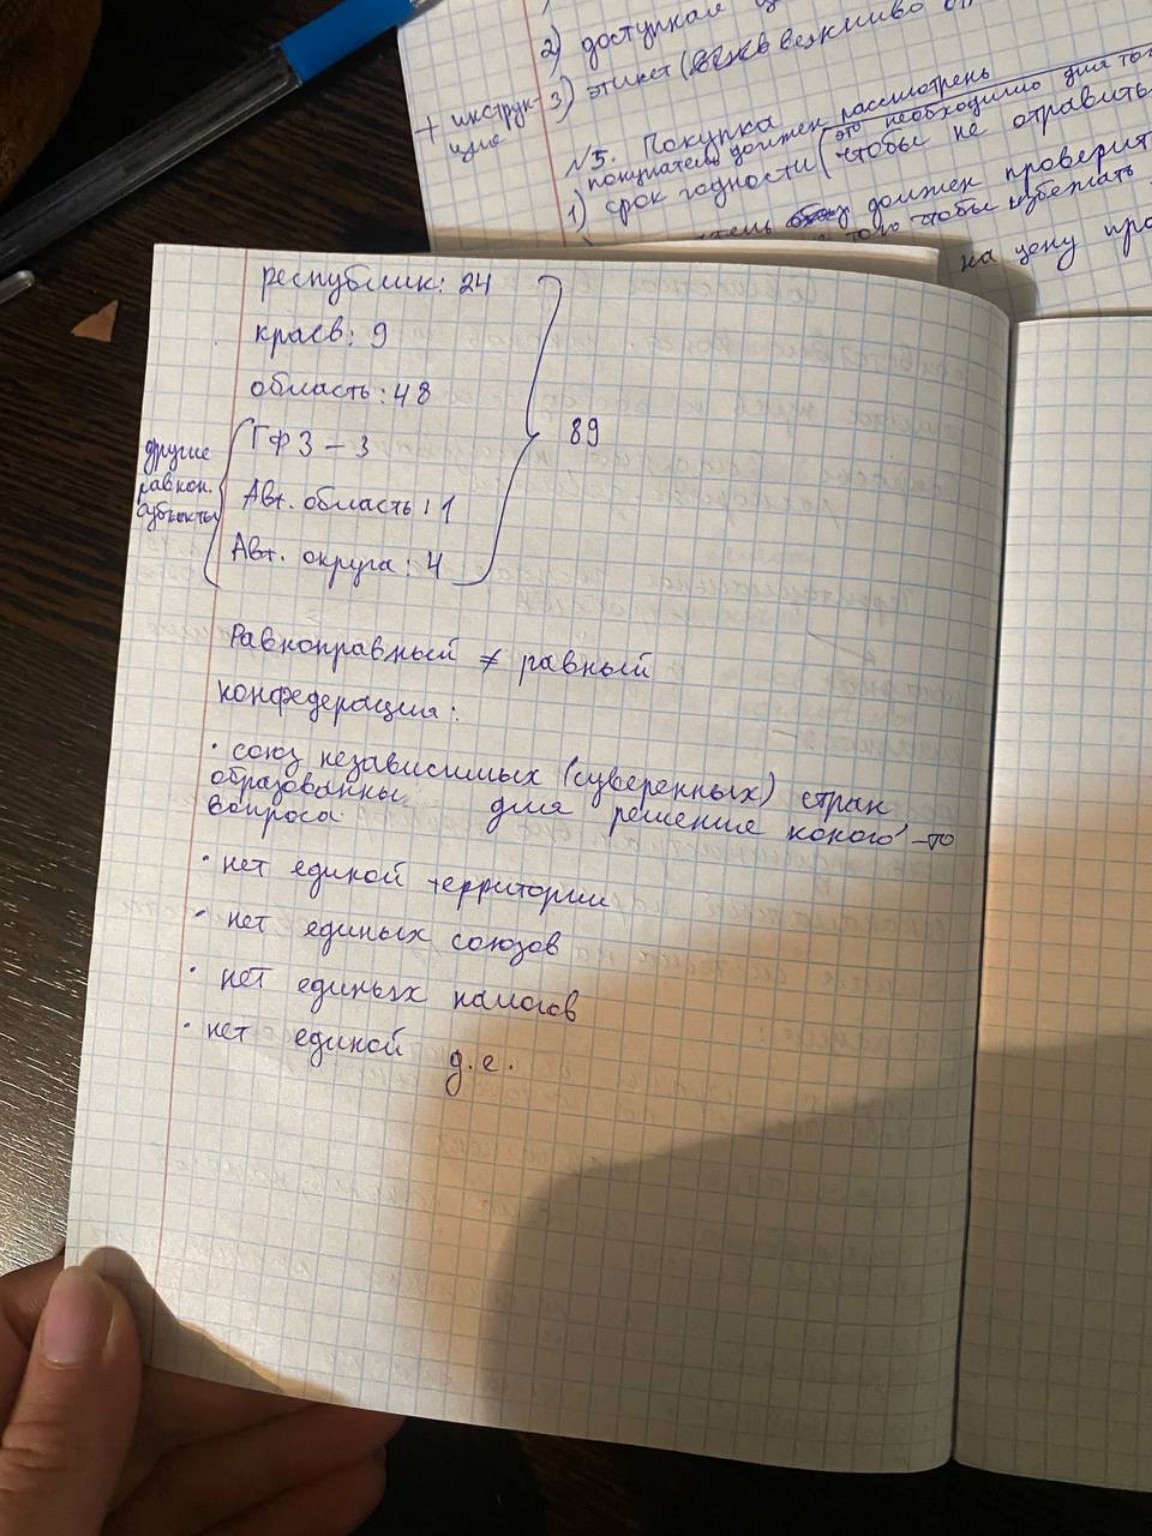 2) доступная
3) этикет ( вежливо
+ инструк-
ция
№5. Покупка
покупатель должен рассмотрень
1) срок годности (это необходимо для того
чтобы не отравить
должен проверит
того чтобы избежать
на цену
республик: 24
краев: 9
область: 48
89
другие
равноп.
субъекты
ГФЗ – 3
Авт. область: 1
Авт. округа: 4
Равноправный ≠ равный
конфедерация:
· союз независимых (суверенных) стран,
образованны для решение кокого-то
вопроса
· нет единой территории
· нет единых союзов
· нет единых налогов
· нет единой д.е.